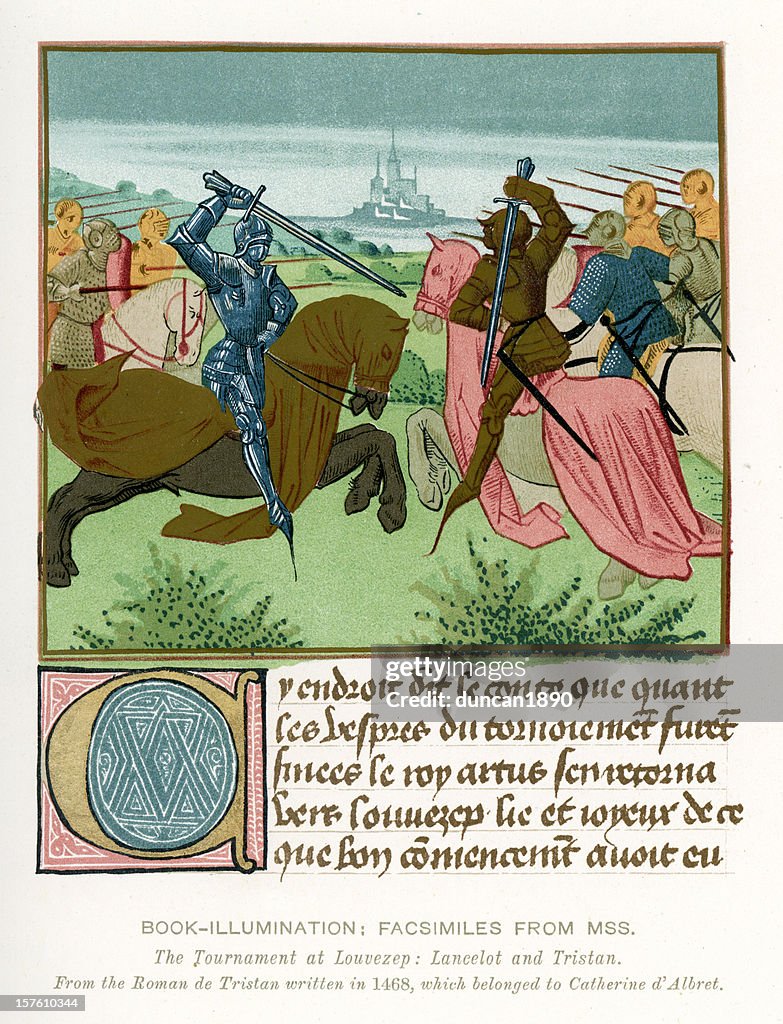 Cy endroit dit le conte que quant
les vespres du tornoiemēt furēt
finees le roy artus sen retorna
vers louuezep lie et ioyeux de ce
que bon cōmencemēt auoit eu
gettyimages
duncan1890
BOOK-ILLUMINATION; FACSIMILES FROM MSS.
The Tournament at Louvezep: Lancelot and Tristan.
From the Roman de Tristan written in 1468, which belonged to Catherine d'Albret.
157610344